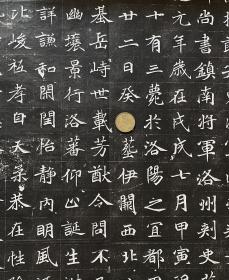 尚書鎮南將軍洛州刺史
元年歲在戊戌七月甲寅
十有三薨於洛陽之宜都
廿二日癸葬伊闕西北
基岳峙世載芳猷今問不
幽壤景行洛蕃仰止誕生
詳謙和閑閨怡靜內明風
比峻極孝自天柔恭在性